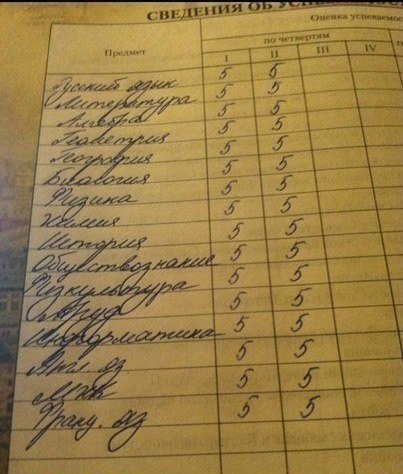 СВЕДЕНИЯ ОБ
Оценка успеваемос
Предмет
по четвертям
I II III IV
Русский язык 5 5
Литература 5 5
Алгебра 5 5
Геометрия 5 5
География 5 5
Биология 5 5
Физика 5 5
Химия 5 5
История 5 5
Обществознание 5 5
Физкультура 5 5
Труд 5 5
Информатика 5 5
Англ. яз 5 5
МХК 5 5
Франц. яз 5 5